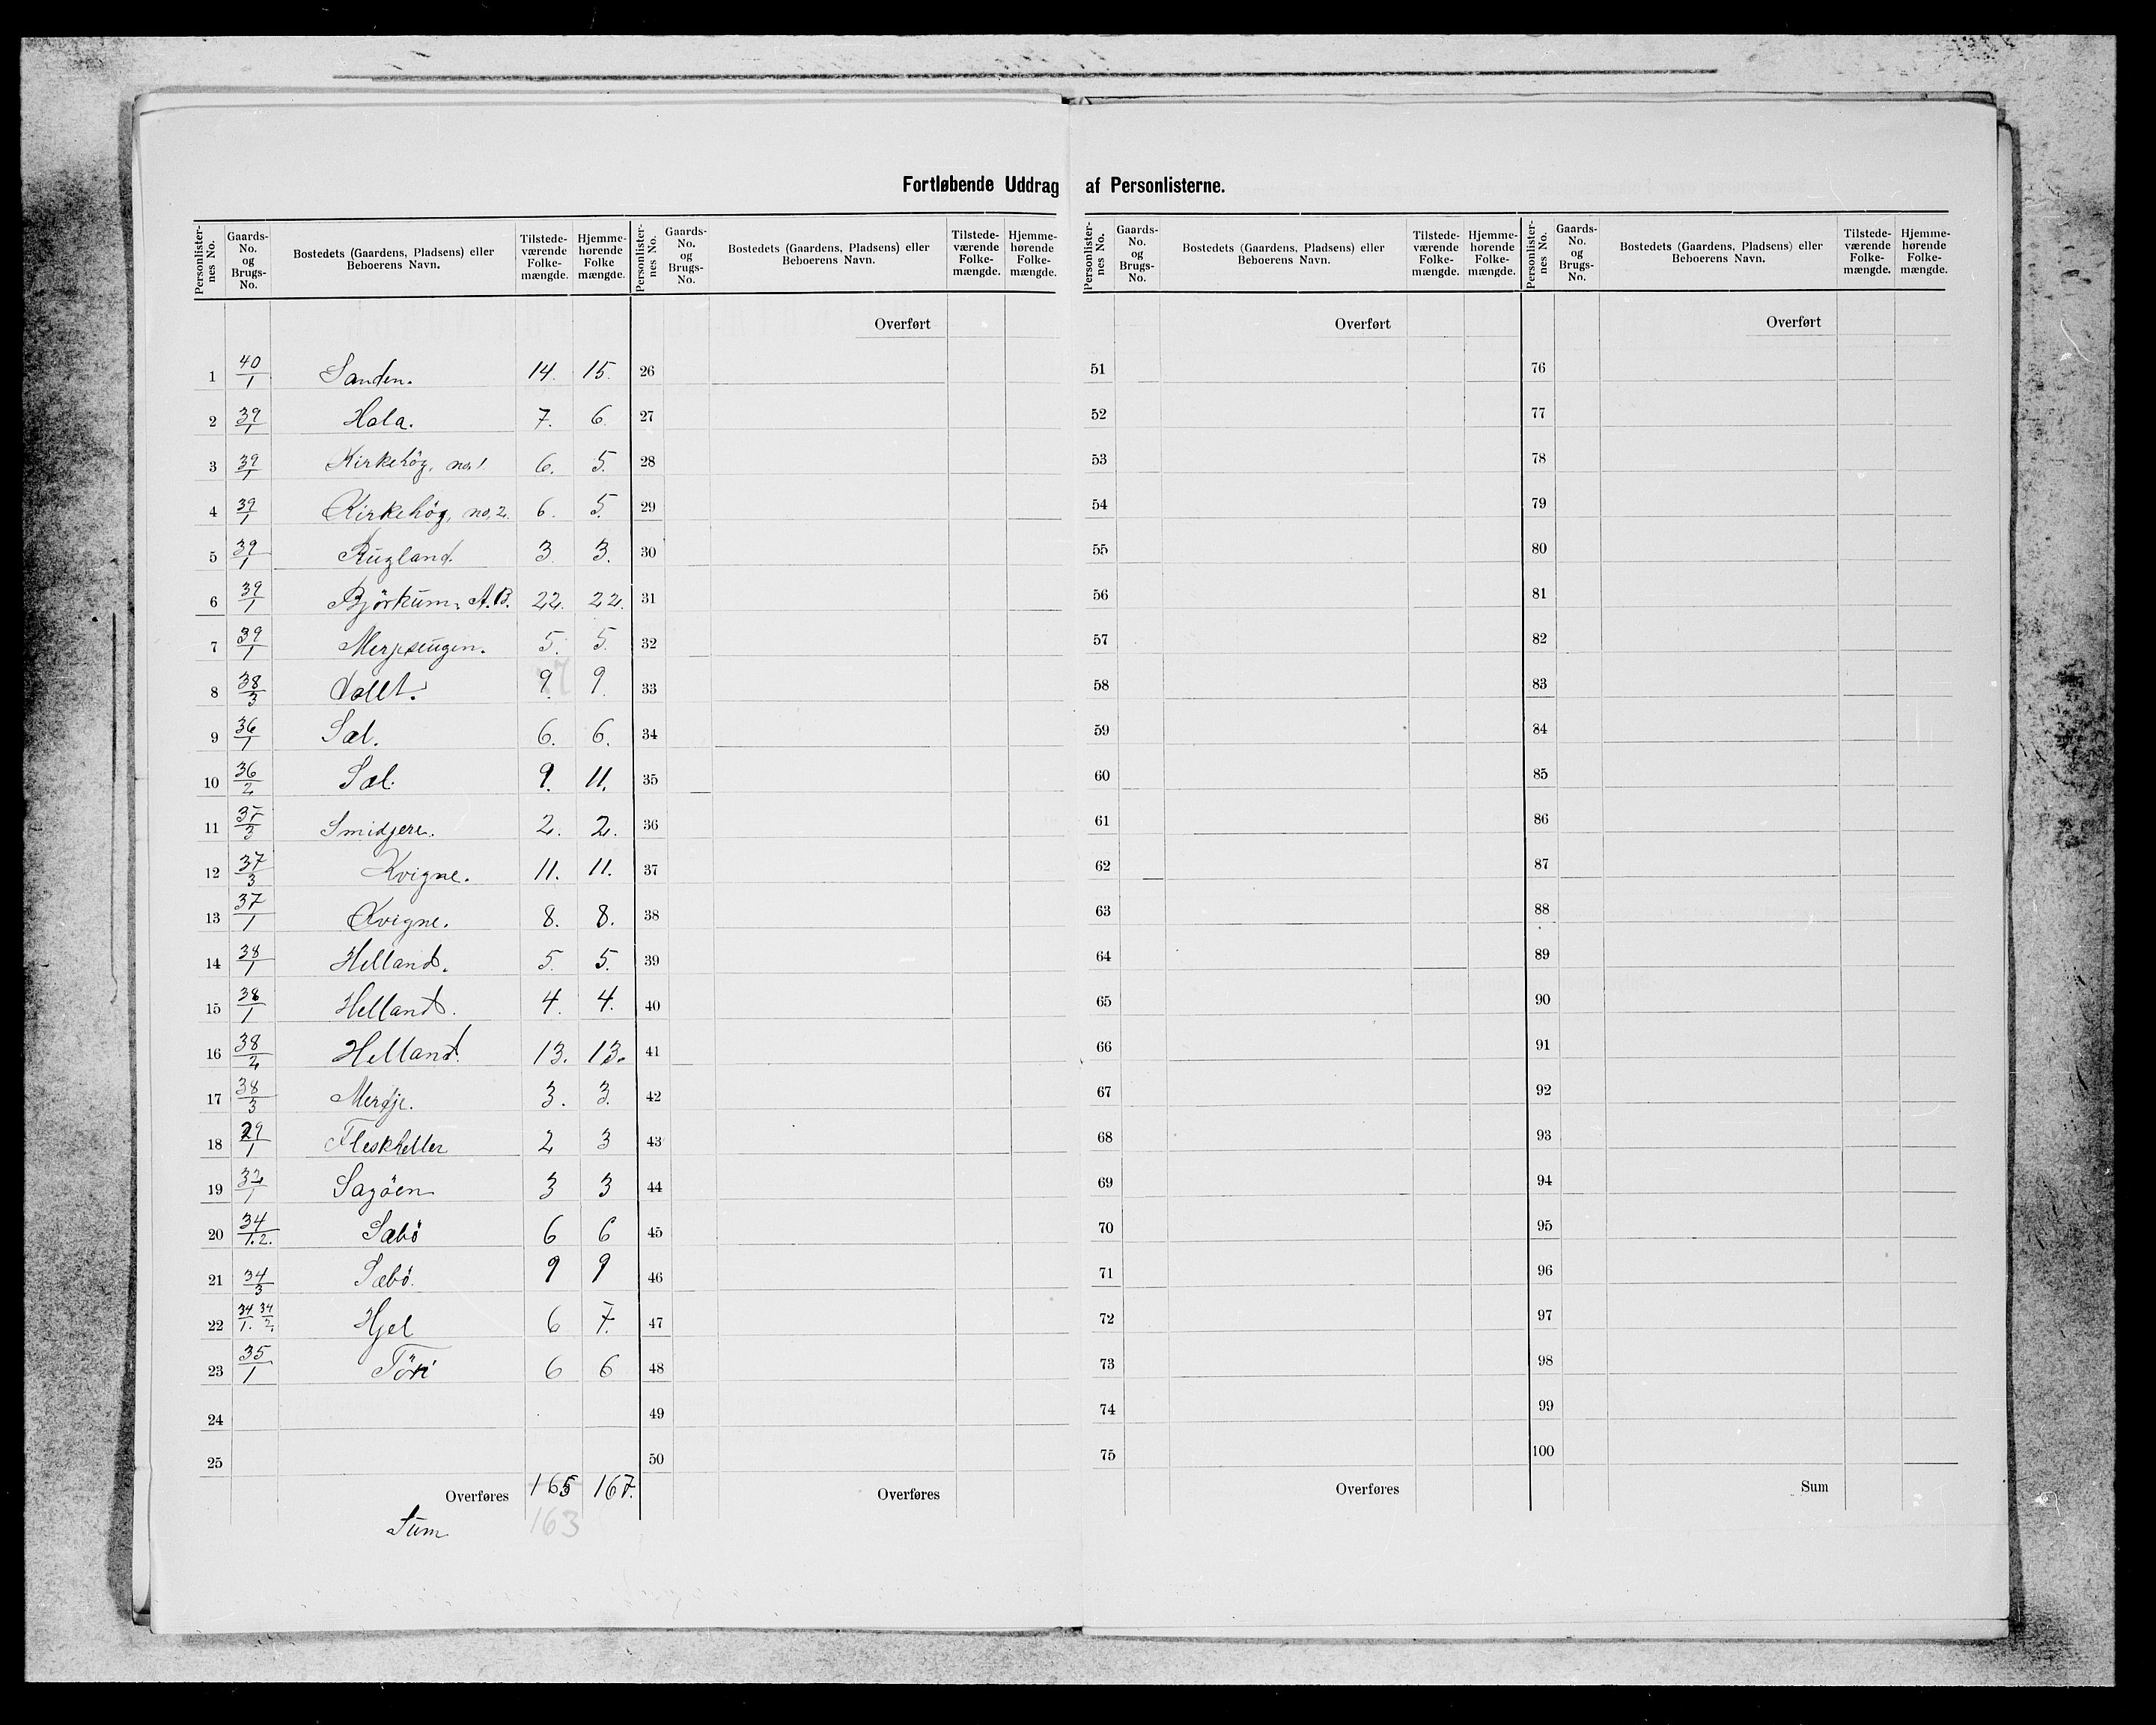 Fortløbende Uddrag af Personlisterne.
Personlister-nes No. Gaards-No. og Brugs-No. Bostedets (Gaardens, Pladsens) eller Beboerens Navn. Tilstede-værende Folke-mængde. Hjemme-hørende Folke mængde. Personlister-nes No. Gaards-No. og Brugs-No. Bostedets (Gaardens, Pladsens) eller Beboerens Navn. Tilstede-værende Folke-mængde. Hjemme-hørende Folke-mængde. Personlister-nes No. Gaards-No. og Brugs-No. Bostedets (Gaardens, Pladsens) eller Beboerens Navn. Tilstede-værende Folke-mængde. Hjemme-hørende Folke-mængde. Personlister-nes No. Gaards-No. og Brugs-No. Bostedets (Gaardens, Pladsens) eller Beboerens Navn. Tilstede-værende Folke-mængde. Hjemme-hørende Folke-mængde.
Overført Overført Overført
1 40/1 Sanden. 14. 15. 26 51 76
2 39/1 Hola. 7. 6. 27 52 77
3 39/1 Kirkehög, no 1. 6. 5. 28 53 78
4 39/1 Kirkehög, no, 2. 6. 5. 29 54 79
5 39/1 Rugland. 3. 3. 30 55 80
6 39/1 Björkum, A.B. 22. 22. 31 56 81
7 39/1 5. 5. 32 57 82
8 38/3 9. 9. 33 58 83
9 36/1 Sæl. 6. 6. 34 59 84
10 36/2 Sæl. 9. 11. 35 60 85
11 37/3 Smidjere. 2. 2. 36 61 86
12 37/3 Kvigne. 11. 11. 37 62 87
13 37/1 Kvigne. 8. 8. 38 63 88
14 38/1 Helland. 5. 5. 39 64 89
15 38/1 Helland. 4. 4. 40 65 90
16 38/2 Helland. 13. 13. 41 66 91
17 38/3 Mergje. 3. 3. 42 67 92
18 29/1 Fleskheller 2 3 43 68 93
19 32/1 Sagöen 3 3 44 69 94
20 34/1.2. Sæbö 6 6 45 70 95
21 34/3 Sæbö. 9 9 46 71 96
22 34/1. 34/2. Hjel 6 7. 47 72 97
23 35/1 6 6 48 73 98
24 49 74 99
25 50 75 100
Overføres 165 167. Overføres Overføres Sum
Sum 163